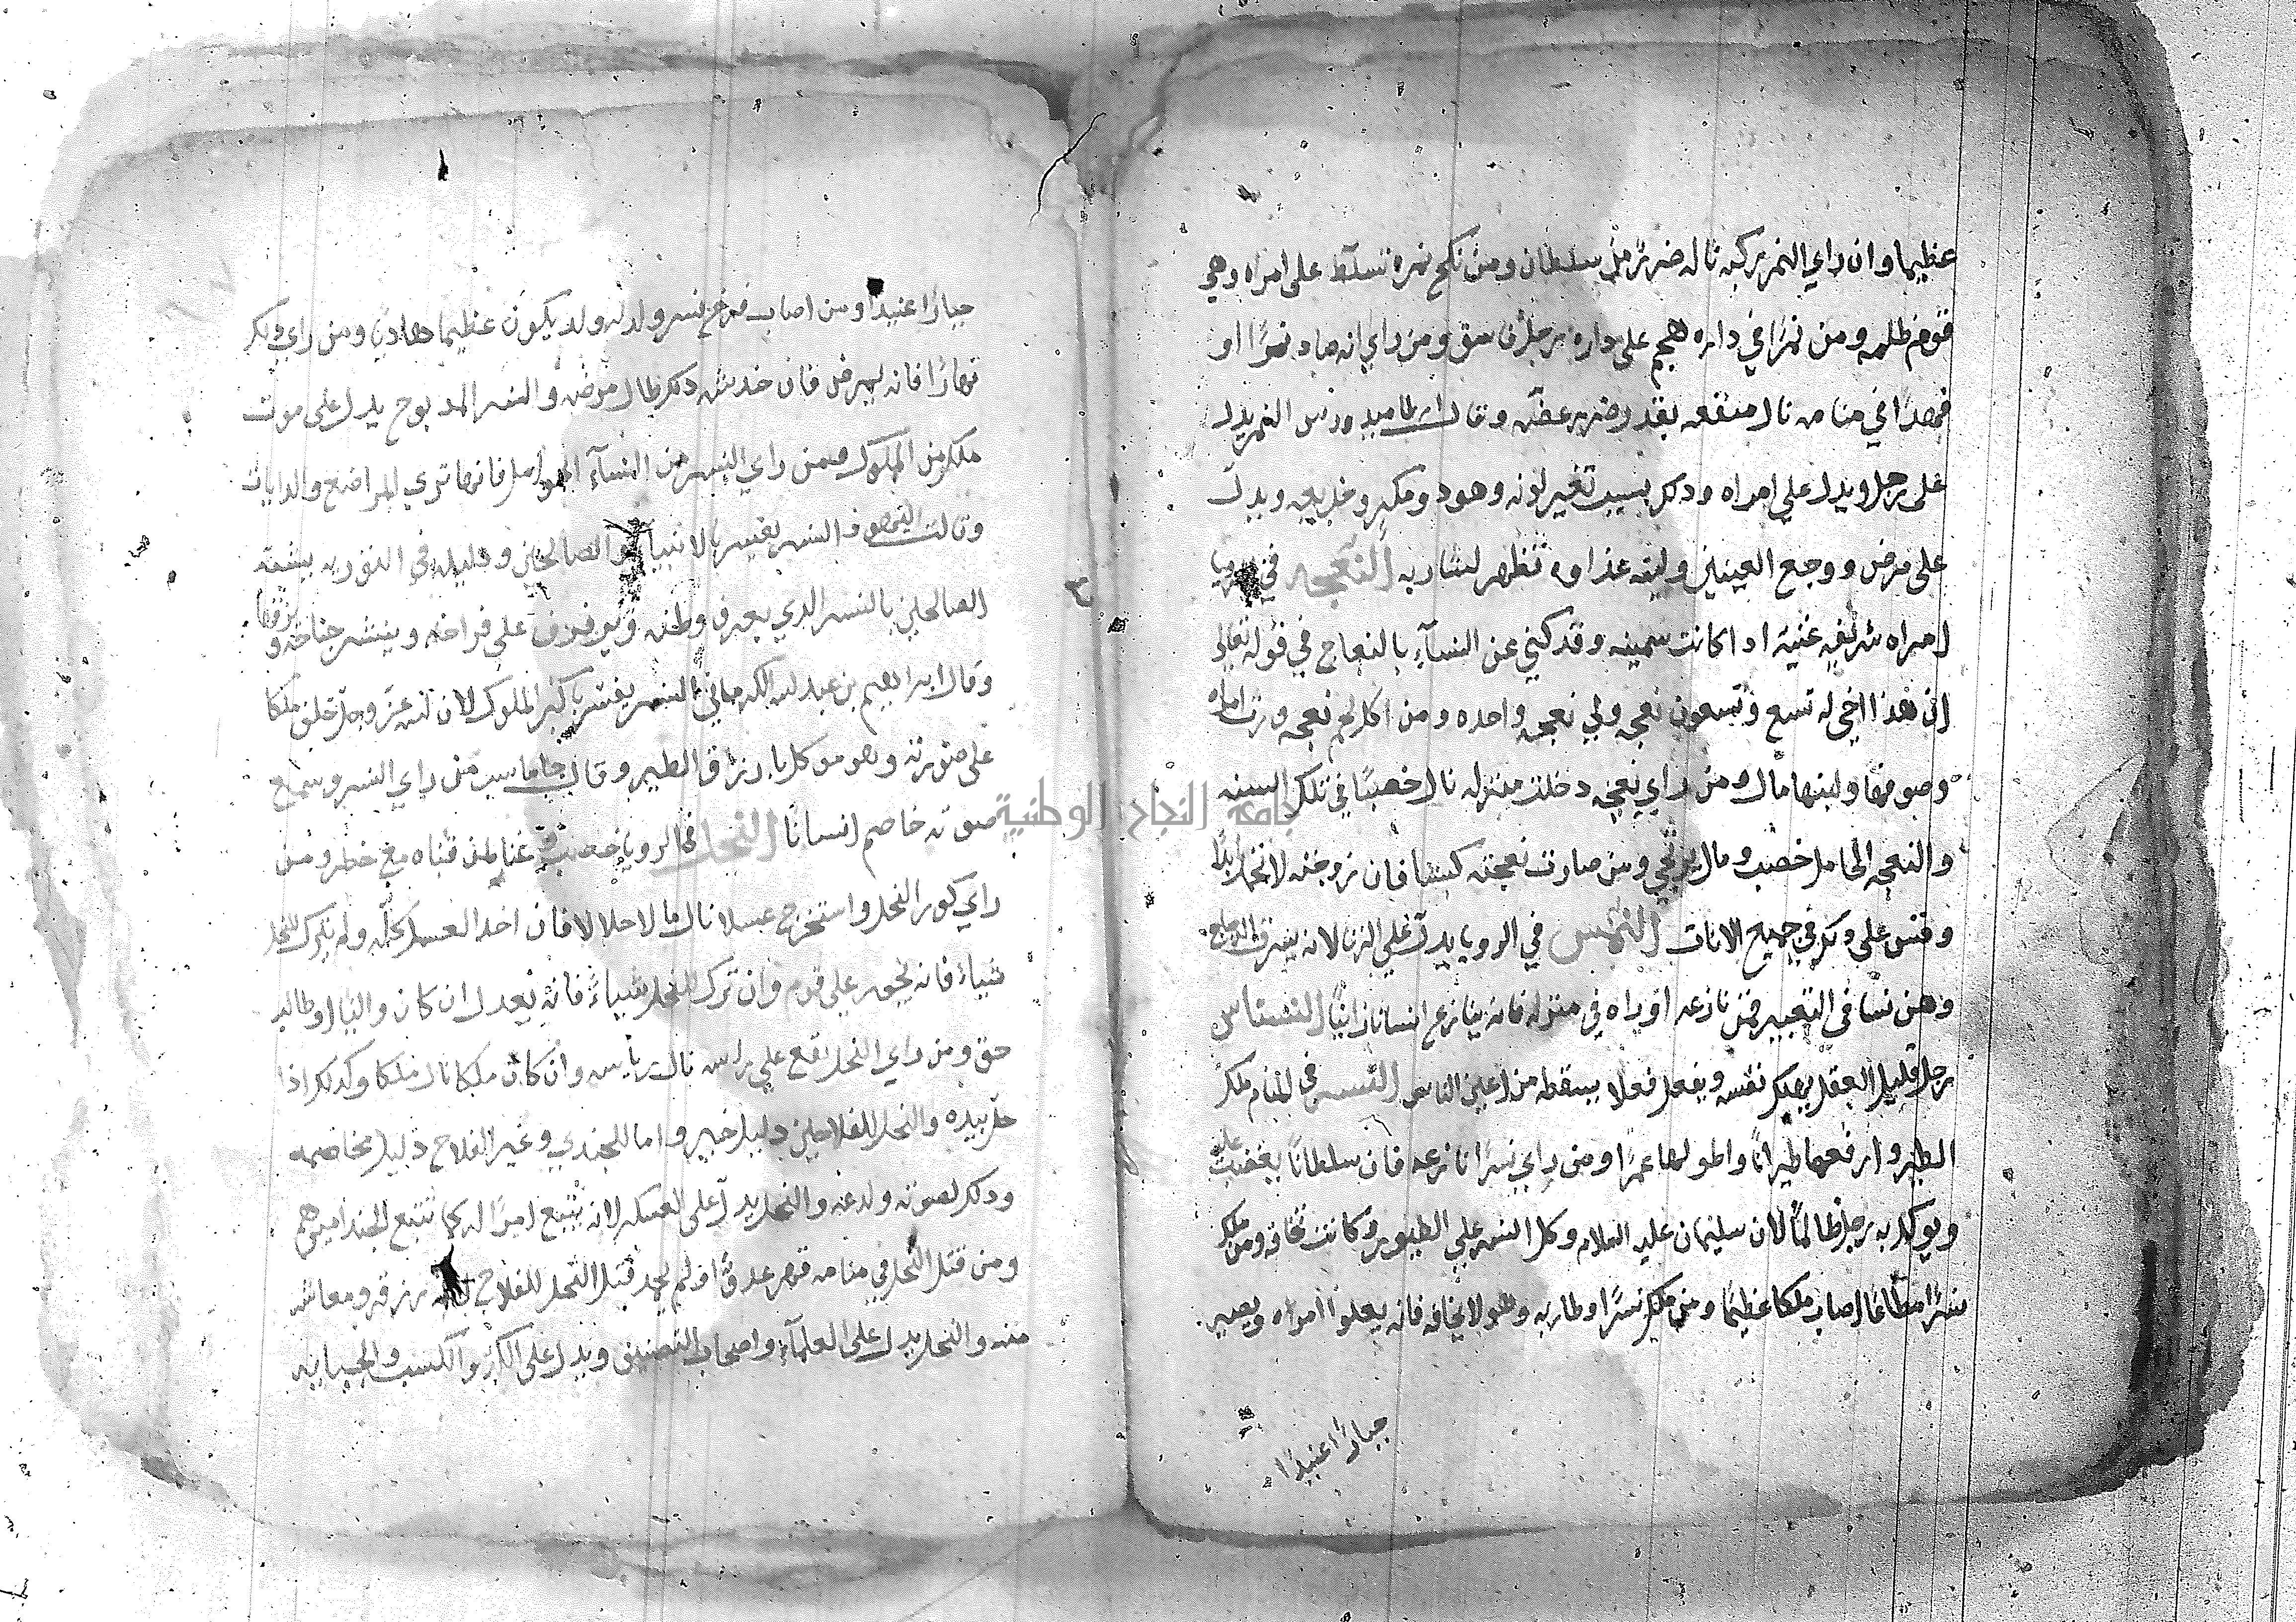 عظيما وان راي النمر يركبه ناله ضرر من سلطان ومن نكح نمره تسلط على امراه وهي
قوم ظلمه ومن نمرًا في داره هجم على داره رجل فاسق ومن راي انه صاد نمرًا او
فهدًا في منامه نال منفعه بقدر ضرر غضبه وقال جاماسب ورئس النمر يدل
على رجل ويدل على امراه ودلك بسبب تغير لونه وهود ومكر وخديعه ويدل
على مرض ووجع العينين ولبنه عداوه تظهر لشاربه النعجه في الرويا
امراه شريفه غنيه ادا كانت سمينه وقد كني عن النسآء بالنعاج في قوله تعالى
ان هذا اخي له تسع وتسعون نعجه ولي نعجه واحده ومن اكل لحم نعجه ورث امراه
وصوفها ولبنها مال ومن راي نعجه دخلت منزله نال خصبًا في تلك السنه
والنعجه الحامل خصب ومال يرتجي ومن صارت نعجته كبشا فان زوجته لا تحمل ابدًا
وقس على دلك في جميع الاناث النمس في الرويا يدل على الزنا لانه يسرق الدجاج
وهن نسا في التعبير فمن نازعه او راه في منزله فانه ينازع انسانا زانيًا النسناس
رجل قليل العقل يهلك نفسه ويفعل فعلا يسقطه من اعين الناس النسر في المنام ملك
الطير وارفعها طيرانًا واطولها عمرًا ومن راي نسرًا نازعه فان سلطانًا يغضب عليه
ويوكل به رجلا ظالمًا لان سليمان عليه السلام وكل النسر على الطيور وكانت تخافه ومن ملك
نسرًا مطاعًا اصاب ملكا عظيمًا ومن ملك نسرًا وطار به وهو لا يخافه فانه يعلوا امراه ويصير
جبارًا عنيدًا
جبارًا عنيدًا ومن اصاب فرخ نسر ولد له ولد يكون عظيما ومن راي دلك
نهارًا فانه يمرض فان خدشه دلك طال مرضه والنسر المدبوح يدل على موت
ملك من الملوك ومن راي النسر من النسآء الحوامل فانها تري المراضع والدايات
وقالت اليهود النسر يفسر بالانبيآء والصالحين ودليله في التوريه يشبه
الصالحين بالنسر الدي يعرف وطنه ويرفرف على فراخه وينشر جناحه و يزقها
وقال ابراهيم بن عبد الله الكرماني النسر يفسر باكبر الملوك لان الله عز وجل خلق ملكا
على صورته وهو موكل بارزاق الطير وقال جاماسب من راي النسر وسمع
صوته خاصم انسانًا النحل في الرويا خصب وغنا لمن قناه مع خطر ومن
راي كور النحل واستخرج عسلا نال مالا حلالا فان اخد العسل كله ولم يترك للنحل
شياء فانه يجور على قوم وان ترك للنحل شياء فانه يعدل ان كان واليا او طالب
حق ومن راي النحل تقع على راسه نال رياسه وان كان ملكا نال ملكا وكدلك اذا
حل بيده والنحل للفلاحين دليل خير واما للجندي وغير الفلاح دليل مخاصمه
ودلك لصوته ولدغه والنحل يدل على العسكر لانه يتبع اميرًا له كما تتبع الجند اميرهم
ومن قتل النحل في منامه قهر عدوًا ولم يحمد قتل النحل للفلاح رزقه ومعاشه
منه والنحل يدل على العلمآء واصحاب التصنيف ويدل على الكد والكسب والجبايه
جامعة النجاح الوطنية